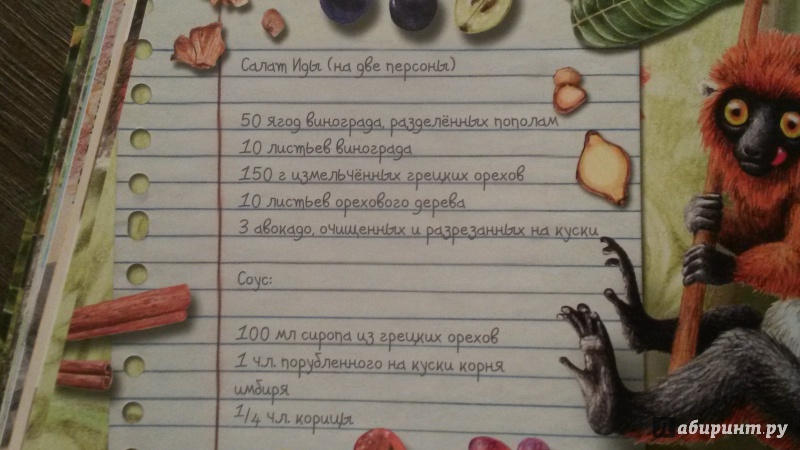 Салат Иды (на две персоны)
50 ягод винограда, разделённых пополам
10 листьев винограда
150 г измельчённых грецких орехов
10 листьев орехового дерева
3 авокадо, очищенных и разрезанных на куски
Соус:
100 мл сиропа из грецких орехов
1 ч.л. порубленного на куски корня
имбиря
1/4 ч.л. корицы
Лабиринт.ру